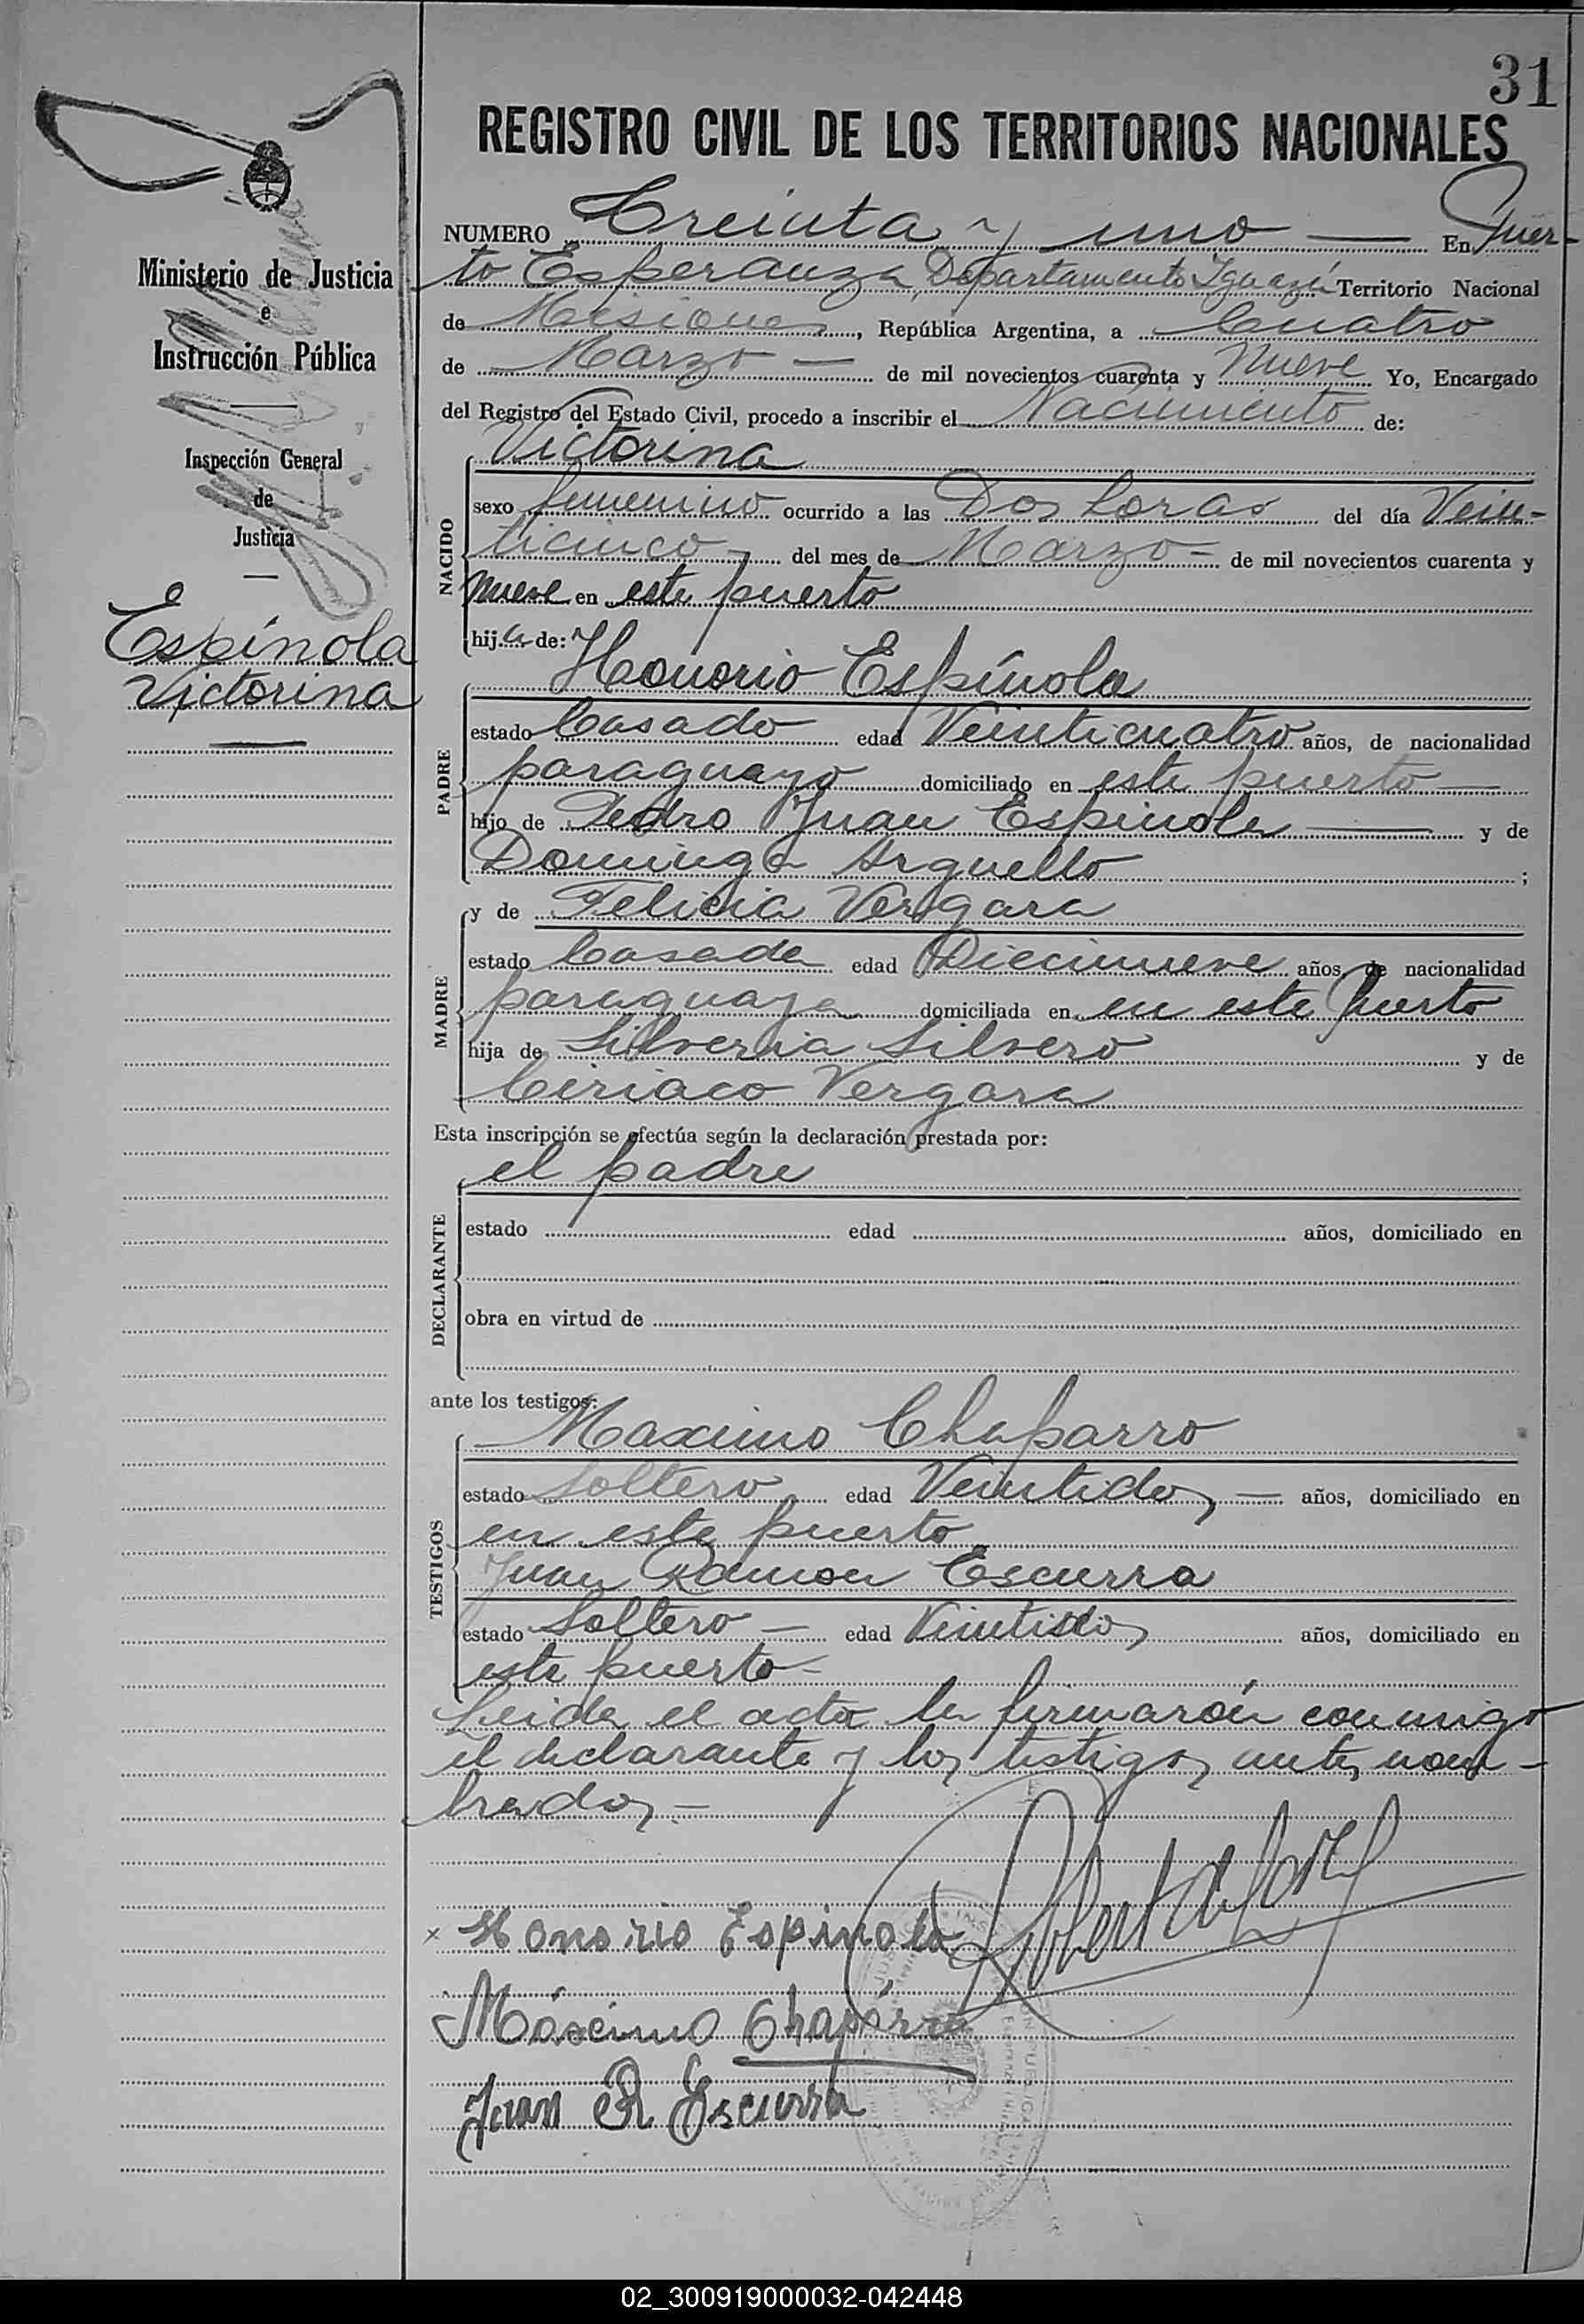 31
REGISTRO CIVIL DE LOS TERRITORIOS NACIONALES
Ministerio de Justicia
e
Instrucción Pública
Inspección General
de
Justicia
Espínola
Victorina
NUMERO Treinta y uno — En Puer-
to Esperanza, Departamento Iguazú Territorio Nacional
de Misiones, República Argentina, a Cuatro
de Marzo — de mil novecientos cuarenta y Nueve Yo, Encargado
del Registro del Estado Civil, procedo a inscribir el Nacimiento de:
Victorina
NACIDO
sexo femenino ocurrido a las Dos horas del día Vein-
ticinco - del mes de Marzo - de mil novecientos cuarenta y
nueve en este puerto
hija de:
Honorio Espínola
PADRE
estado Casado edad Veinticuatro años, de nacionalidad
paraguayo domiciliado en este puerto —
hijo de Pedro Juan Espinola — y de
Dominga Arguello ;
y de Felicia Vergara
MADRE
estado Casada edad Diecinueve años, de nacionalidad
paraguaya domiciliada en en este puerto
hija de Silveria Silvero y de
Ciriaco Vergara
Esta inscripción se efectúa según la declaración prestada por:
el padre
DECLARANTE
estado edad años, domiciliado en
obra en virtud de
ante los testigos:
Maximo Chaparro
TESTIGOS
estado Soltero edad Veintidos — años, domiciliado en
en este puerto
Juan Ramon Escurra
estado Soltero — edad Veintidos años, domiciliado en
este puerto -
Leida el acta la firmarón conmigo
el declarante y los testigos antes nom-
brados. -
x Honorio Espinola
Máximo Chaparro
Juan R Escurra
02_300919000032-042448